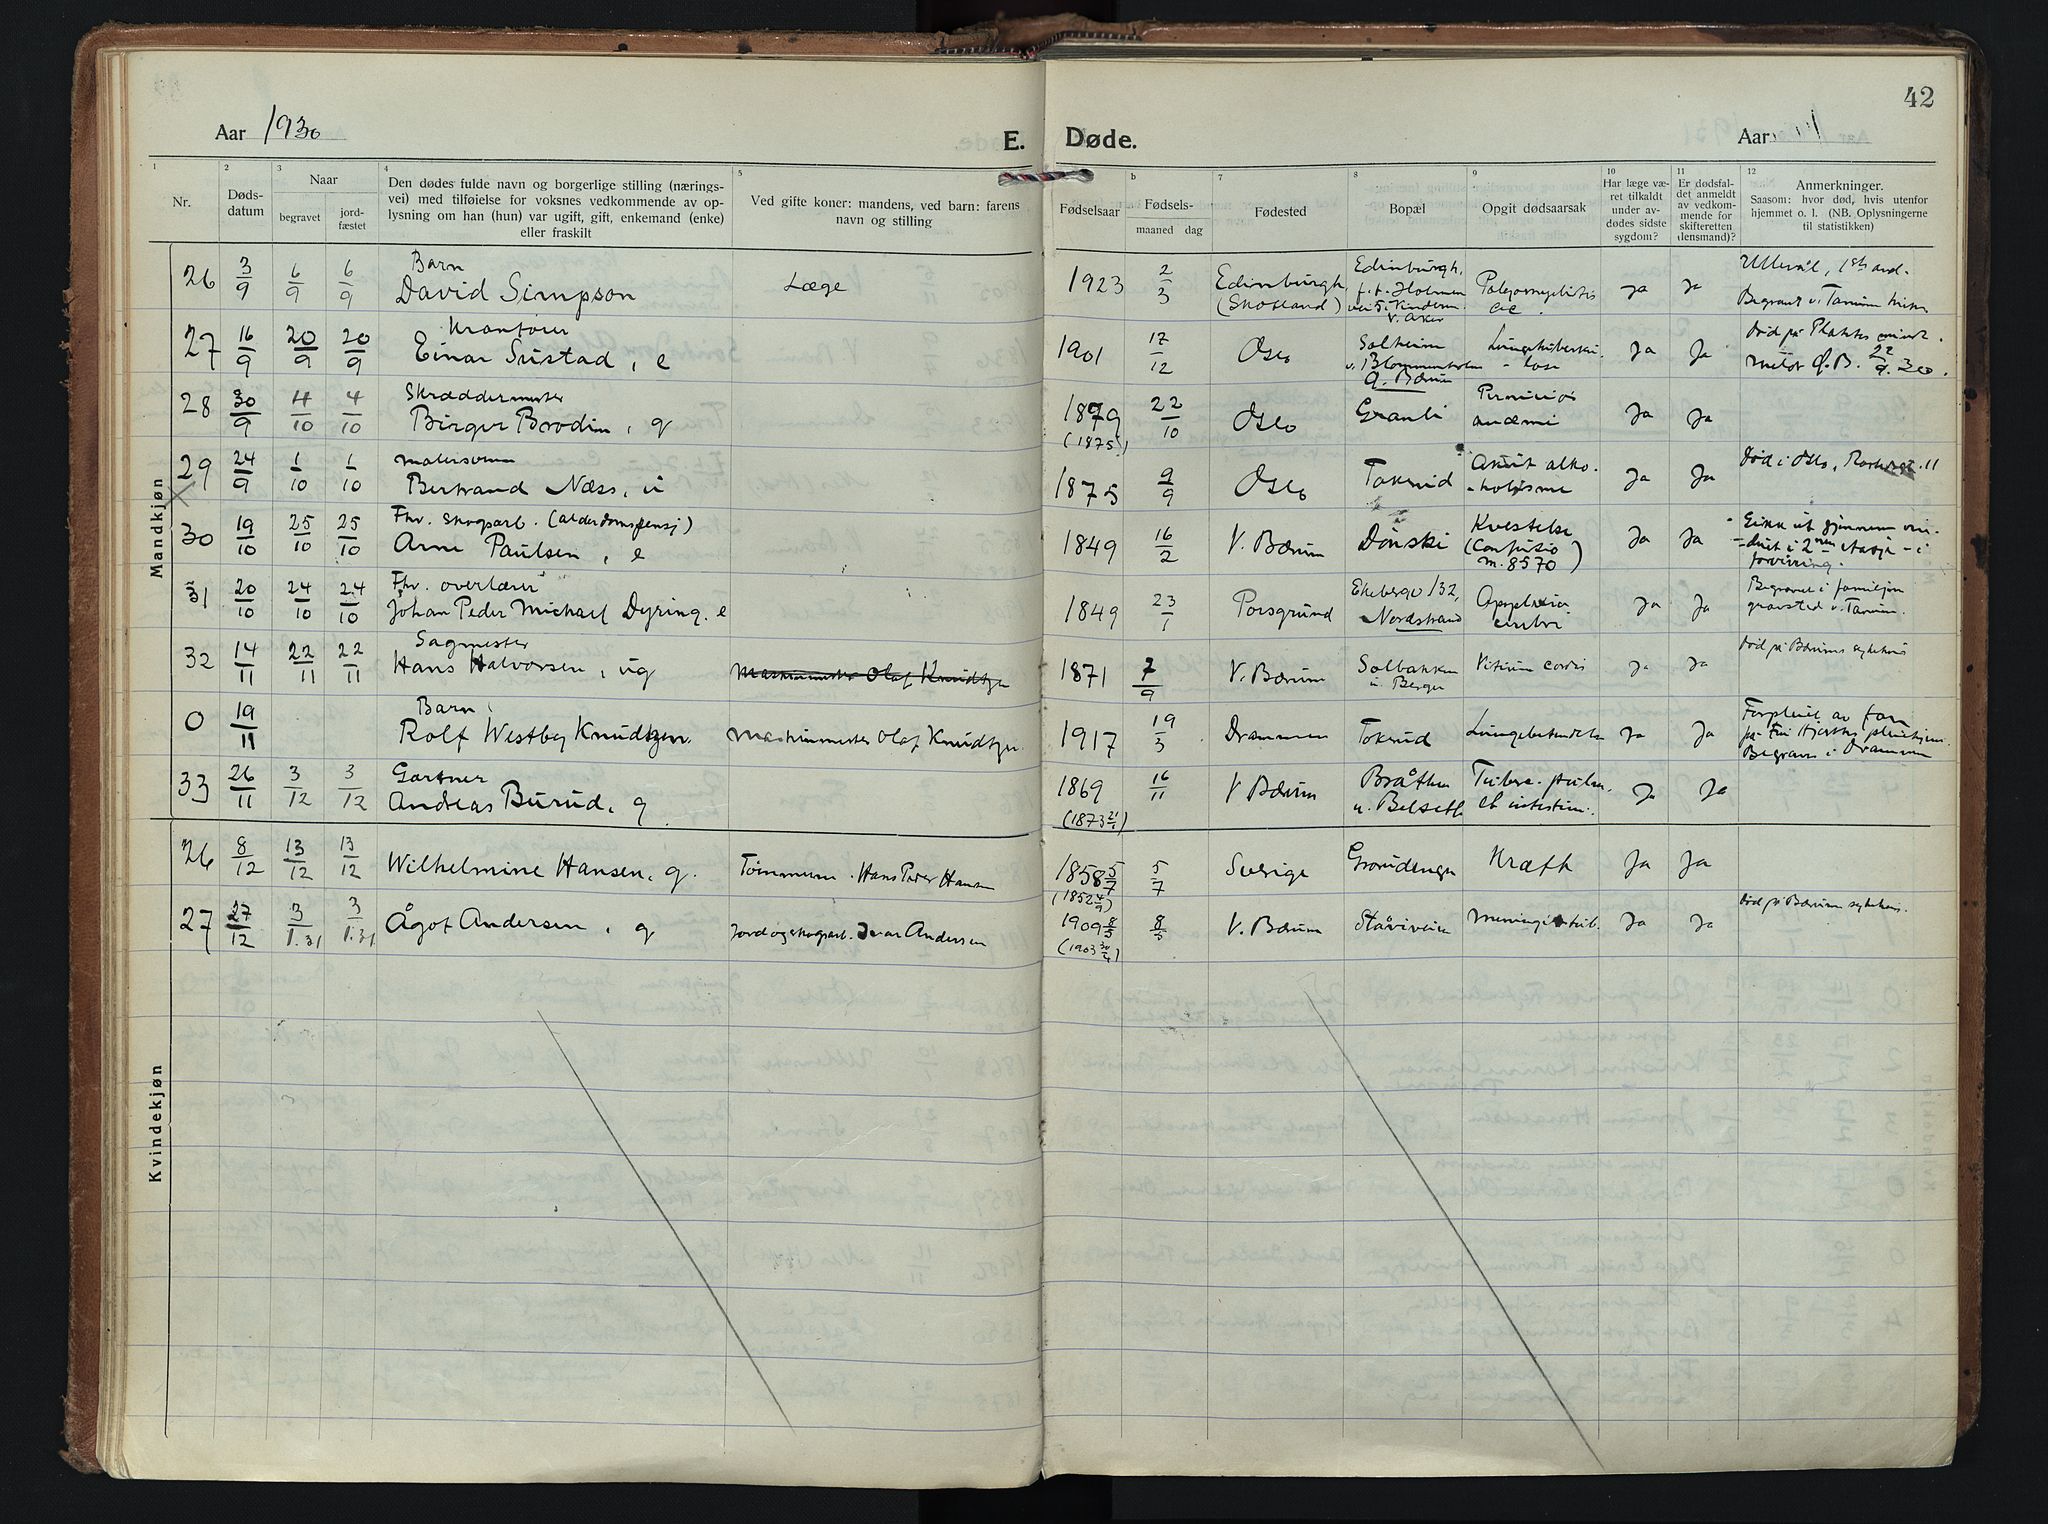 42
Aar 1930
E. Døde.
Aar
1 2 3 4 5 b 7 8 9 10 11 12
Nr.
Døds-
datum
Naar
begravet
jord-
fæstet
Den dødes fulde navn og borgerlige stilling (nærings-
vei) med tilføielse for voksnes vedkommende av op-
lysning om han (hun) var ugift, gift, enkemand (enke)
eller fraskilt
Ved gifte koner: mandens, ved barn: farens
navn og stilling
Fødselsaar
Fødsels-
maaned dag
Fødested
Bopæl
Opgit dødsaarsak
Har læge væ-
ret tilkaldt
under av-
dødes sidste
sygdom?
Er dødsfal-
det anmeldt
av vedkom-
mende for
skifteretten
(lensmand)?
Anmerkninger.
Saasom: hvor død, hvis utenfor
hjemmet o. l. (NB. Oplysningerne
til statistikken)
Mandkjøn
26 3/9 6/9 6/9 Barn
David Simpson Læge 1923 2/3 Edinburgh
(Skotland) Edinburgh,
f.t. Holmen
vei 5, Vindern
V. Aker Ja Ja Ullevål, 
Begravet v. Tanum kirke
27 16/9 20/9 20/9
Einar Sustad, e 1901 17/12 Oslo Solheim
v. Blommenholm
Ø. Bærum Ja Ja Død på
28 30/9 4/10 4/10 Skræddermester
Birger Brodin, g 1879
(1875) 22/10 Oslo Granli Perniciøs
anæmi Ja Ja
29 24/9 1/10 1/10 Malersvenn
Bertrand Næss, u 1875 9/9 Oslo Tokerud Akut alko-
holisme Ja Ja Død i Oslo,
30 19/10 25/10 25/10 Fhv. skogsarb. (alderdomspensj)
Arne Paulsen, e 1849 16/2 V. Bærum Dønski Kvestelse
(Confusio
m. 8570) Ja Ja Gikk ut gjennem vin-
duet i 2nen etasje i
forvirring.
31 20/10 24/10 24/10 Fhv. overlærer
Johan Peder Michael Dyring, e 1849 23/1 Porsgrund Ekebergv 132,
Nordstrand Apoplexia
cerebri Ja Ja Begravet i familien
gravsted v. Tanum.
32 14/11 22/11 22/11 Sagmester
Hans Halvorsen, ug Maskinmester Olaf Knudtzen 1871 7/9 V. Bærum Solbakken
u. Berger Vitium cordis Ja Ja Død på Bærums sykehus
0 19/11 Barn
Rolf Westby Knudtzen. Maskinmester Olaf Knudtzen. 1917 19/3 Drammen Tokerud Lungebetændelse Ja Ja Forpleiet av
på Hjorths pleiehjem
Begravet i Drammen
33 26/11 3/12 3/12 Gartner
Andreas Burud, g. 1869
(1873 21/1) 16/11 V Bærum Bråthen
u. Belset Tuberc. pulm.
et intestin. Ja Ja
Kvindekjøn
26 8/12 13/12 13/12 Wilhelmine Hansen, g. Tømmerm. Hans Peder Hansen 1858 5/7
(1852 4/9) 5/7 Sverige Grorudenga Kræft Ja Ja
27 27/12 3/1.31 3/1.31 Ågot Andersen, g Jord og skogsarb. Ivar Andersen 1909 8/5
(1903 30/4) 8/5 V. Bærum Stoviveien Meningit tub. Ja Ja Død på Bærum sykehus.